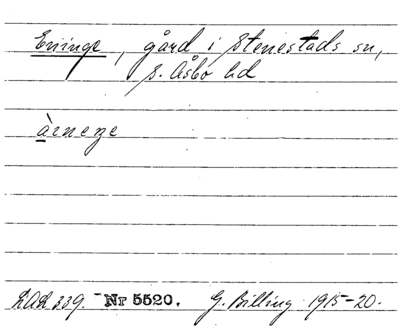 Eninge, gård i Stenestads sn,
S. Åsbo hd
LAL 339. Nr 5520. G. Billing 1915-20.